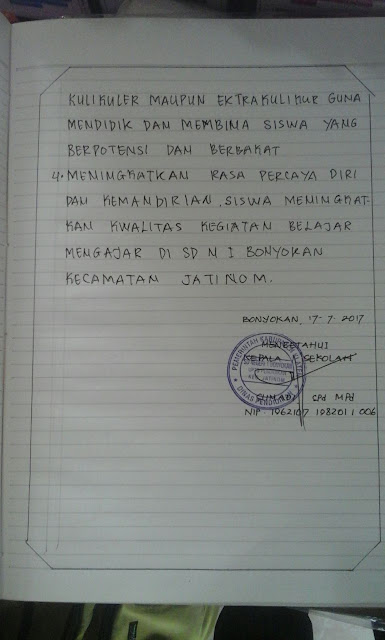 KULIKULER MAUPUN EKTRAKULIKUR GUNA
MENDIDIK DAN MEMBINA SISWA YANG
BERPOTENSI DAN BERBAKAT
4. MENINGKATKAN RASA PERCAYA DIRI
DAN KEMANDIRIAN, SISWA MENINGKAT-
KAN KWALITAS KEGIATAN BELAJAR
MENGAJAR DI SD N I BONYOKAN
KECAMATAN JATINOM.
BONYOKAN, 17-7-2017
MENGETAHUI
KEPALA SEKOLAH
PEMERINTAH
DINAS PENDIDIKAN
SUMADI SPd MPd
NIP. 1962107 1982011 006